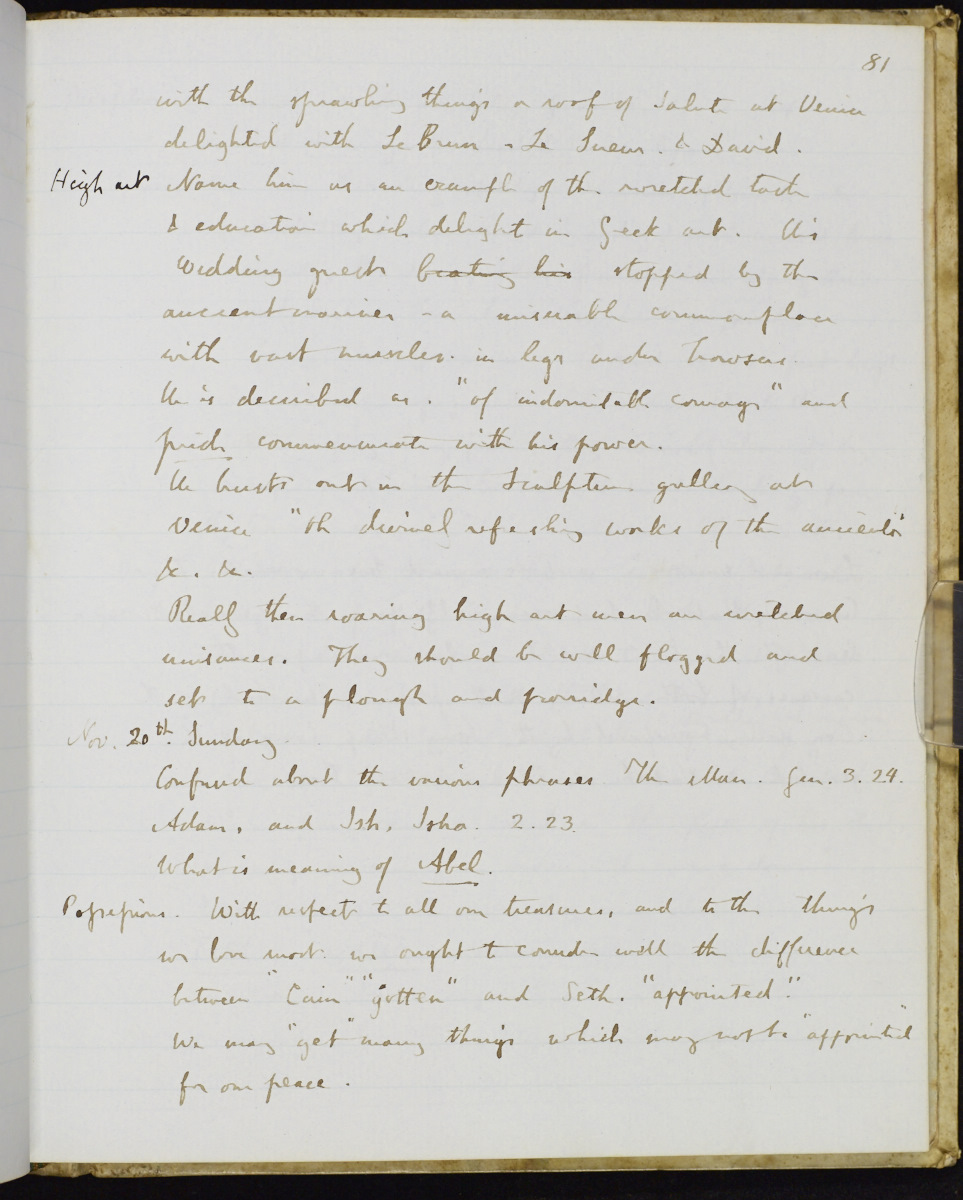 81
with the sprawling things on roof of Salute at Venice
delighted with Le Brun - Le Sueur. & David.
High art Name him as an example of the wretched taste
& education which delight in Greek art. His
Wedding guest beating his stopped by the
ancient mariner - a miserable commonplace
with vast muscles. in legs under trowsers.
He is described as. "of indomitable courage" and
pride commensurate with his power.
He bursts out in the Sculpture gallery at
Venice "Oh divine refreshing works of the ancients
&c. &c.
Really these roaring high art men are wretched
nuisances. They should be well flogged and
set to a plough and porridge.
Nov. 20th. Sunday
Confused about the various phrases The Man. Gen. 3.24.
Adam, and Ish, Isha. 2.23.
What is meaning of Abel.
Possessions. With respect to all our treasures, and to the things
we love most. we ought to consider well the difference
between "Cain" "gotten" and Seth. "appointed".
We may "get" many things which may not be "appointed"
for our peace.